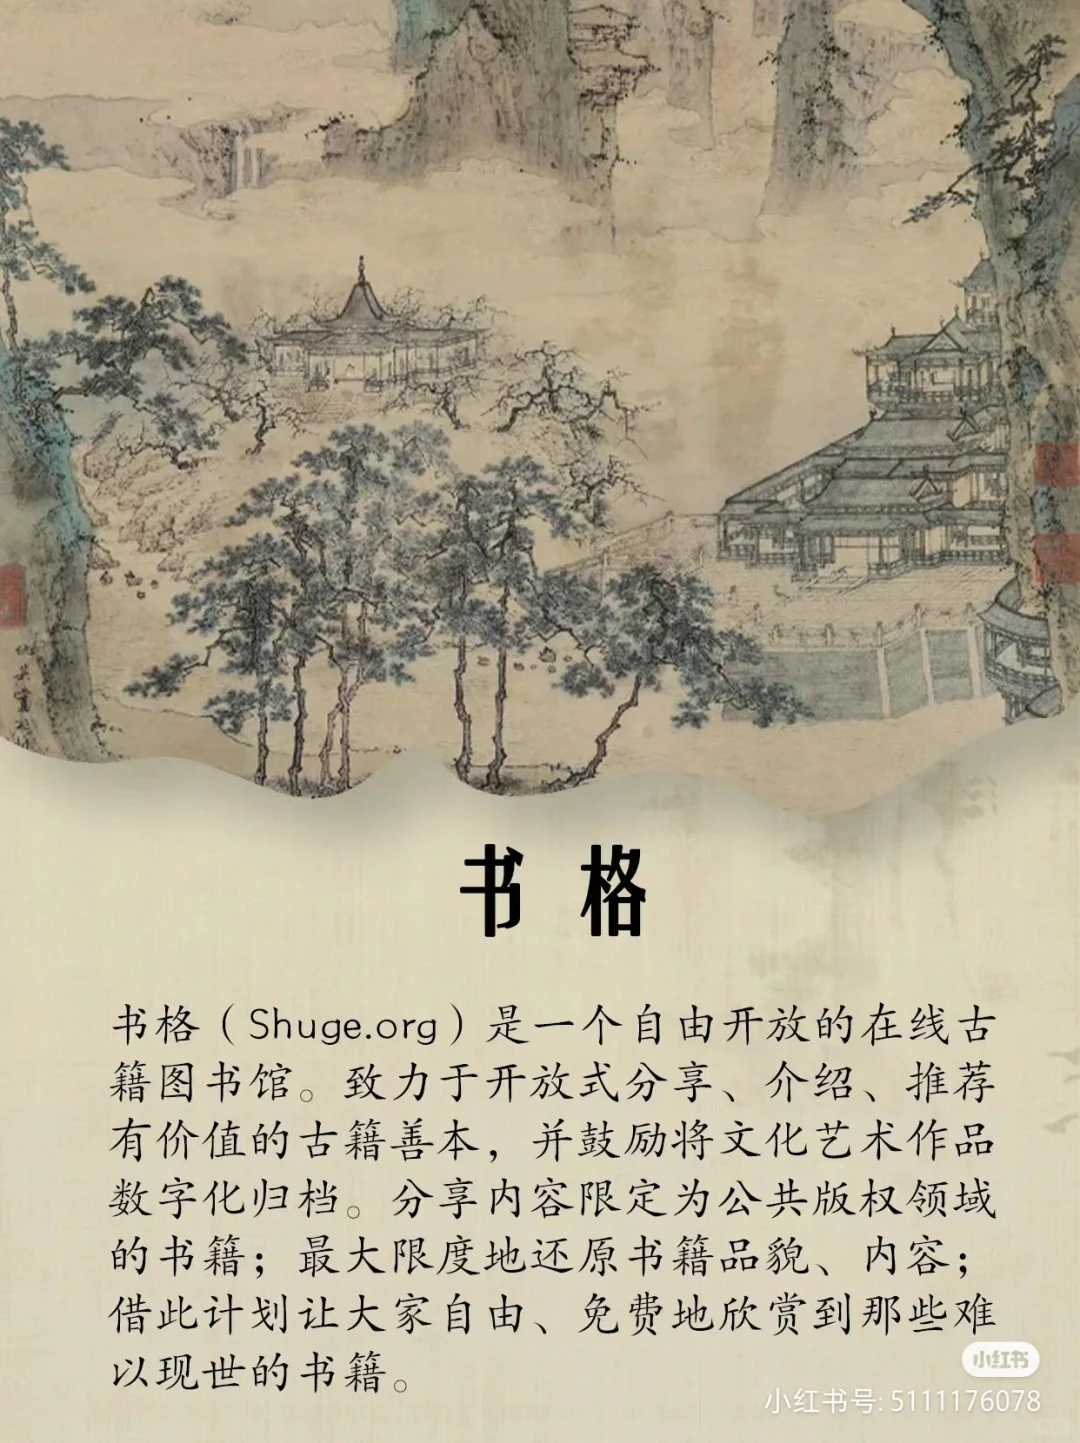 书格
书格（Shuge.org）是一个自由开放的在线古
籍图书馆。致力于开放式分享、介绍、推荐
有价值的古籍善本，并鼓励将文化艺术作品
数字化归档。分享内容限定为公共版权领域
的书籍；最大限度地还原书籍品貌、内容；
借此计划让大家自由、免费地欣赏到那些难
以现世的书籍。
小红书
小红书号: 5111176078